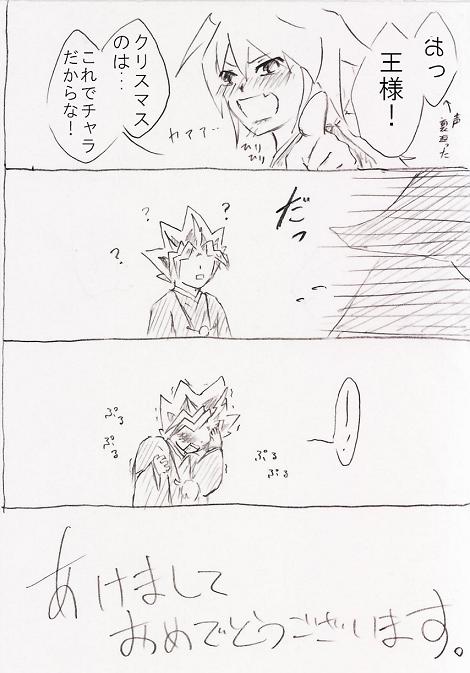 おっ
王様！
←声
裏返った
クリスマス
のは…
これでチャラ
だからな！
わてて…
ひりひり
だっ
？
？
？
…！
ぷる
ぷる
ぷる
ぷる
あけまして
おめでとうございます。